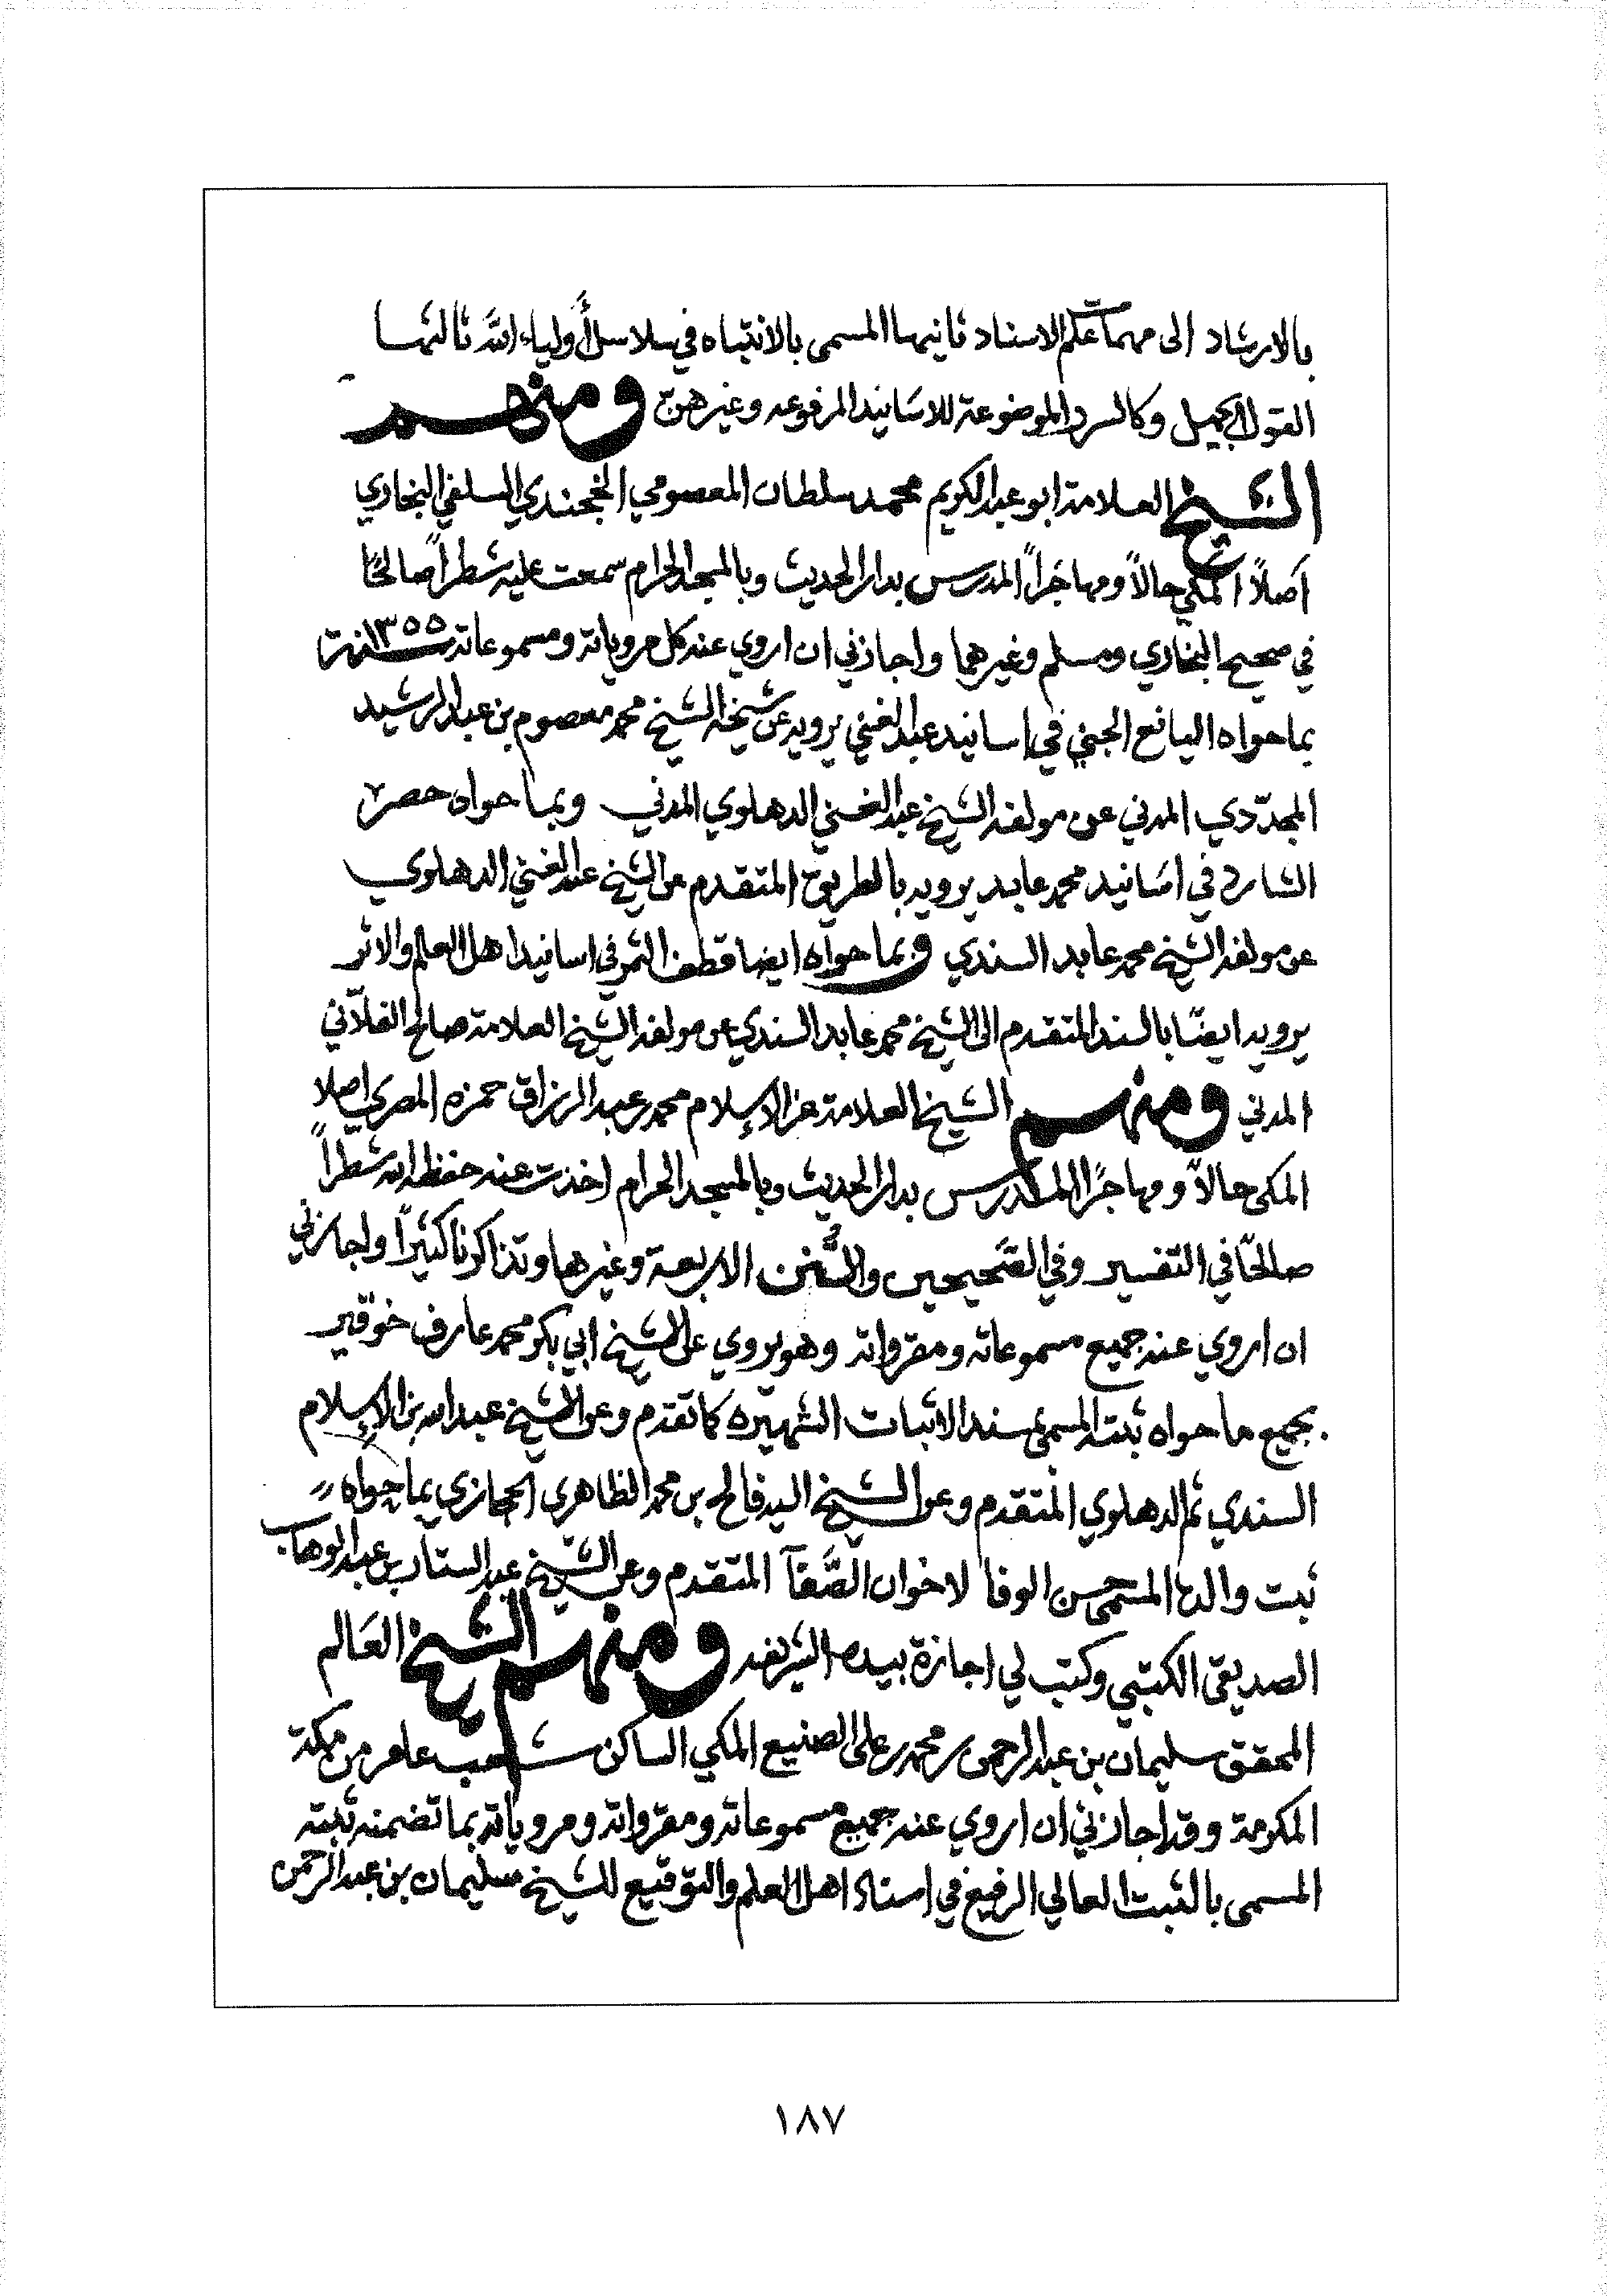 بالارشاد الى مهمات علم الاسناد ثانيها المسمى بالانتباه في سلاسل أولياء الله ثالثها
القول الجميل وكالسرد الموضوعة للاسانيد المرفوعه وغيرهن ومنهم
الشيخ العلامة ابو عبد الكريم محمد سلطان المعصومي الخجندي السلفي البخاري
أصلاً المكي حالاً ومهاجراً المدرس بدار الحديث وبالمسجد الحرام سمعت عليه شطراً صالحًا
في صحيح البخاري ومسلم وغيرهما واجازني ان اروي عنه كل مروياته ومسموعاته سنة ١٣٥٥
بما حواه اليانع الجني في اسانيد عبد الغني يرويه عن شيخه الشيخ محمد معصوم بن عبد الرشيد
المجدّدي المدني عن مولفه الشيخ عبد الغني الدهلوي المدني وبما حواه حصر
الشارد في اسانيد محمد عابد يرويه بالطريق المتقدم عن الشيخ عبد الغني الدهلوي
عن مولفه الشيخ محمد عابد السندي وبما حواه ايضا قطف الثمر في اسانيد اهل العلم والاثر
يرويه ايضًا بالسند المتقدم الى الشيخ محمد عابد السندي عن مولفه الشيخ العلامة صالح الفلاّني
المدني ومنهم الشيخ العلامة عز الإسلام محمد بن عبد الرزاق حمزه المصري اصلا
المكي حالاً ومهاجرًا المدرس بدار الحديث وبالمسجد الحرام اخذت عنه حفظه الله شطراً
صالحًا في التفسير وفي الصَّحيحين والسُّنن الاربعة وغيرها وتذاكرنا كثيراً واجازني
ان اروي عنه جميع مسموعاته ومقرواته وهو يروي عن الشيخ ابي بكر محمد عارف خوقير
بجميع ما حواه ثبته المسمى مسند الاثبات الشهيره كما تقدم وعن الشيخ عبد الله بن الإسلام
السندي ثم الدهلوي المتقدم وعن الشيخ السيد فالح بن محمد الظاهري الحجازي بما حواه
ثبت والده المسمى حسن الوفا لاخوان الصَّفآ المتقدم وعن الشيخ عبد الستار بن عبد الوهاب
الصديقي الكتبي وكتب لي اجازة بيده الشريفه ومنهم الشيخ العَالم
المحقق سليمان بن عبد الرحمن بن محمد بن علي الصنيع المكي الساكن شعب عامر من مكة
المكرمة وقد أجازني ان اروي عنه جميع مسموعاته ومقرواته ومروياته بما تضمنه ثبته
المسمى بالثبت العالي الرفيع في اسناد اهل العلم والتوقيع للشيخ سليمان بن عبد الرحمن
١٨٧